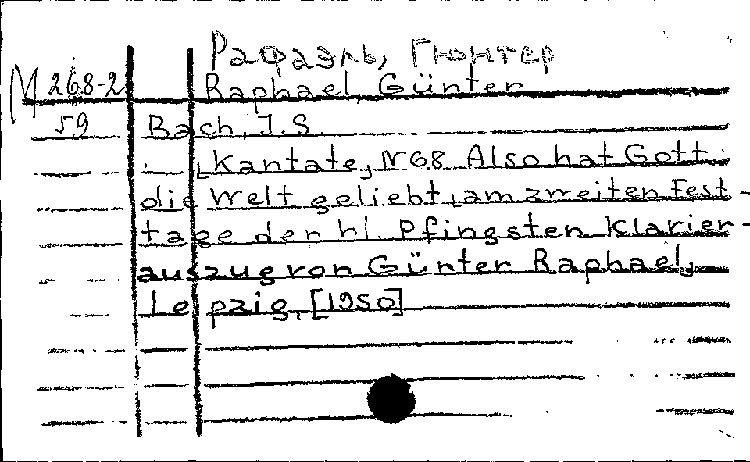 Рафаэль, Гюнтер
M 268-2 Raphael, Günter
59 Bach, J.S.
[Kantate, N 68 Also hat Gott
die Welt geliebt, am zweiten Fest-
tage der hl. Pfingsten Klavier-
auszug von Günter Raphael,
Leipzig, [1950]